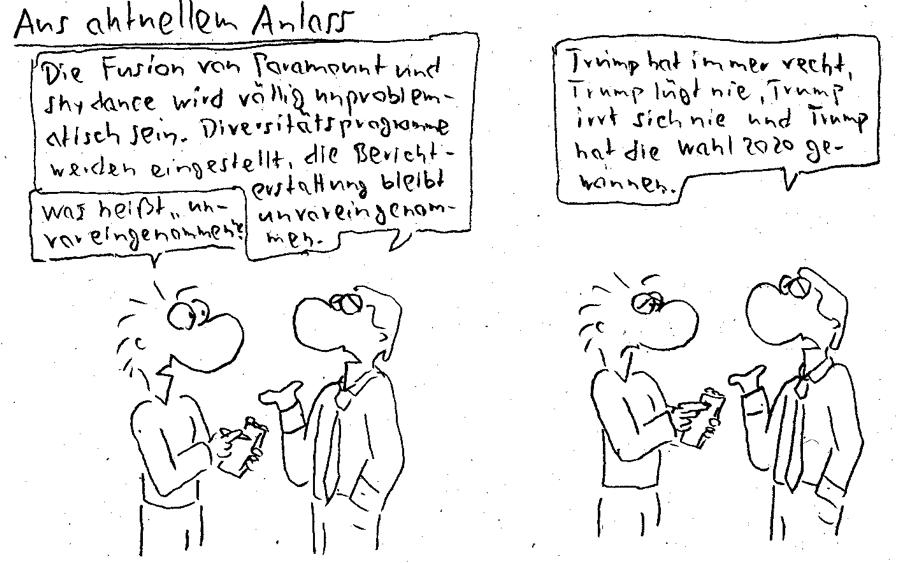 Aus aktuellem Anlass
Die Fusion von Paramount und
Skydance wird völlig unproblem-
atisch sein. Diversitätsprogramme
werden eingestellt, die Bericht-
erstattung bleibt
unvoreingenom-
men.
Was heißt „un-
voreingenommen"?
Trump hat immer recht,
Trump lügt nie, Trump
irrt sich nie und Trump
hat die Wahl 2020 ge-
wonnen.